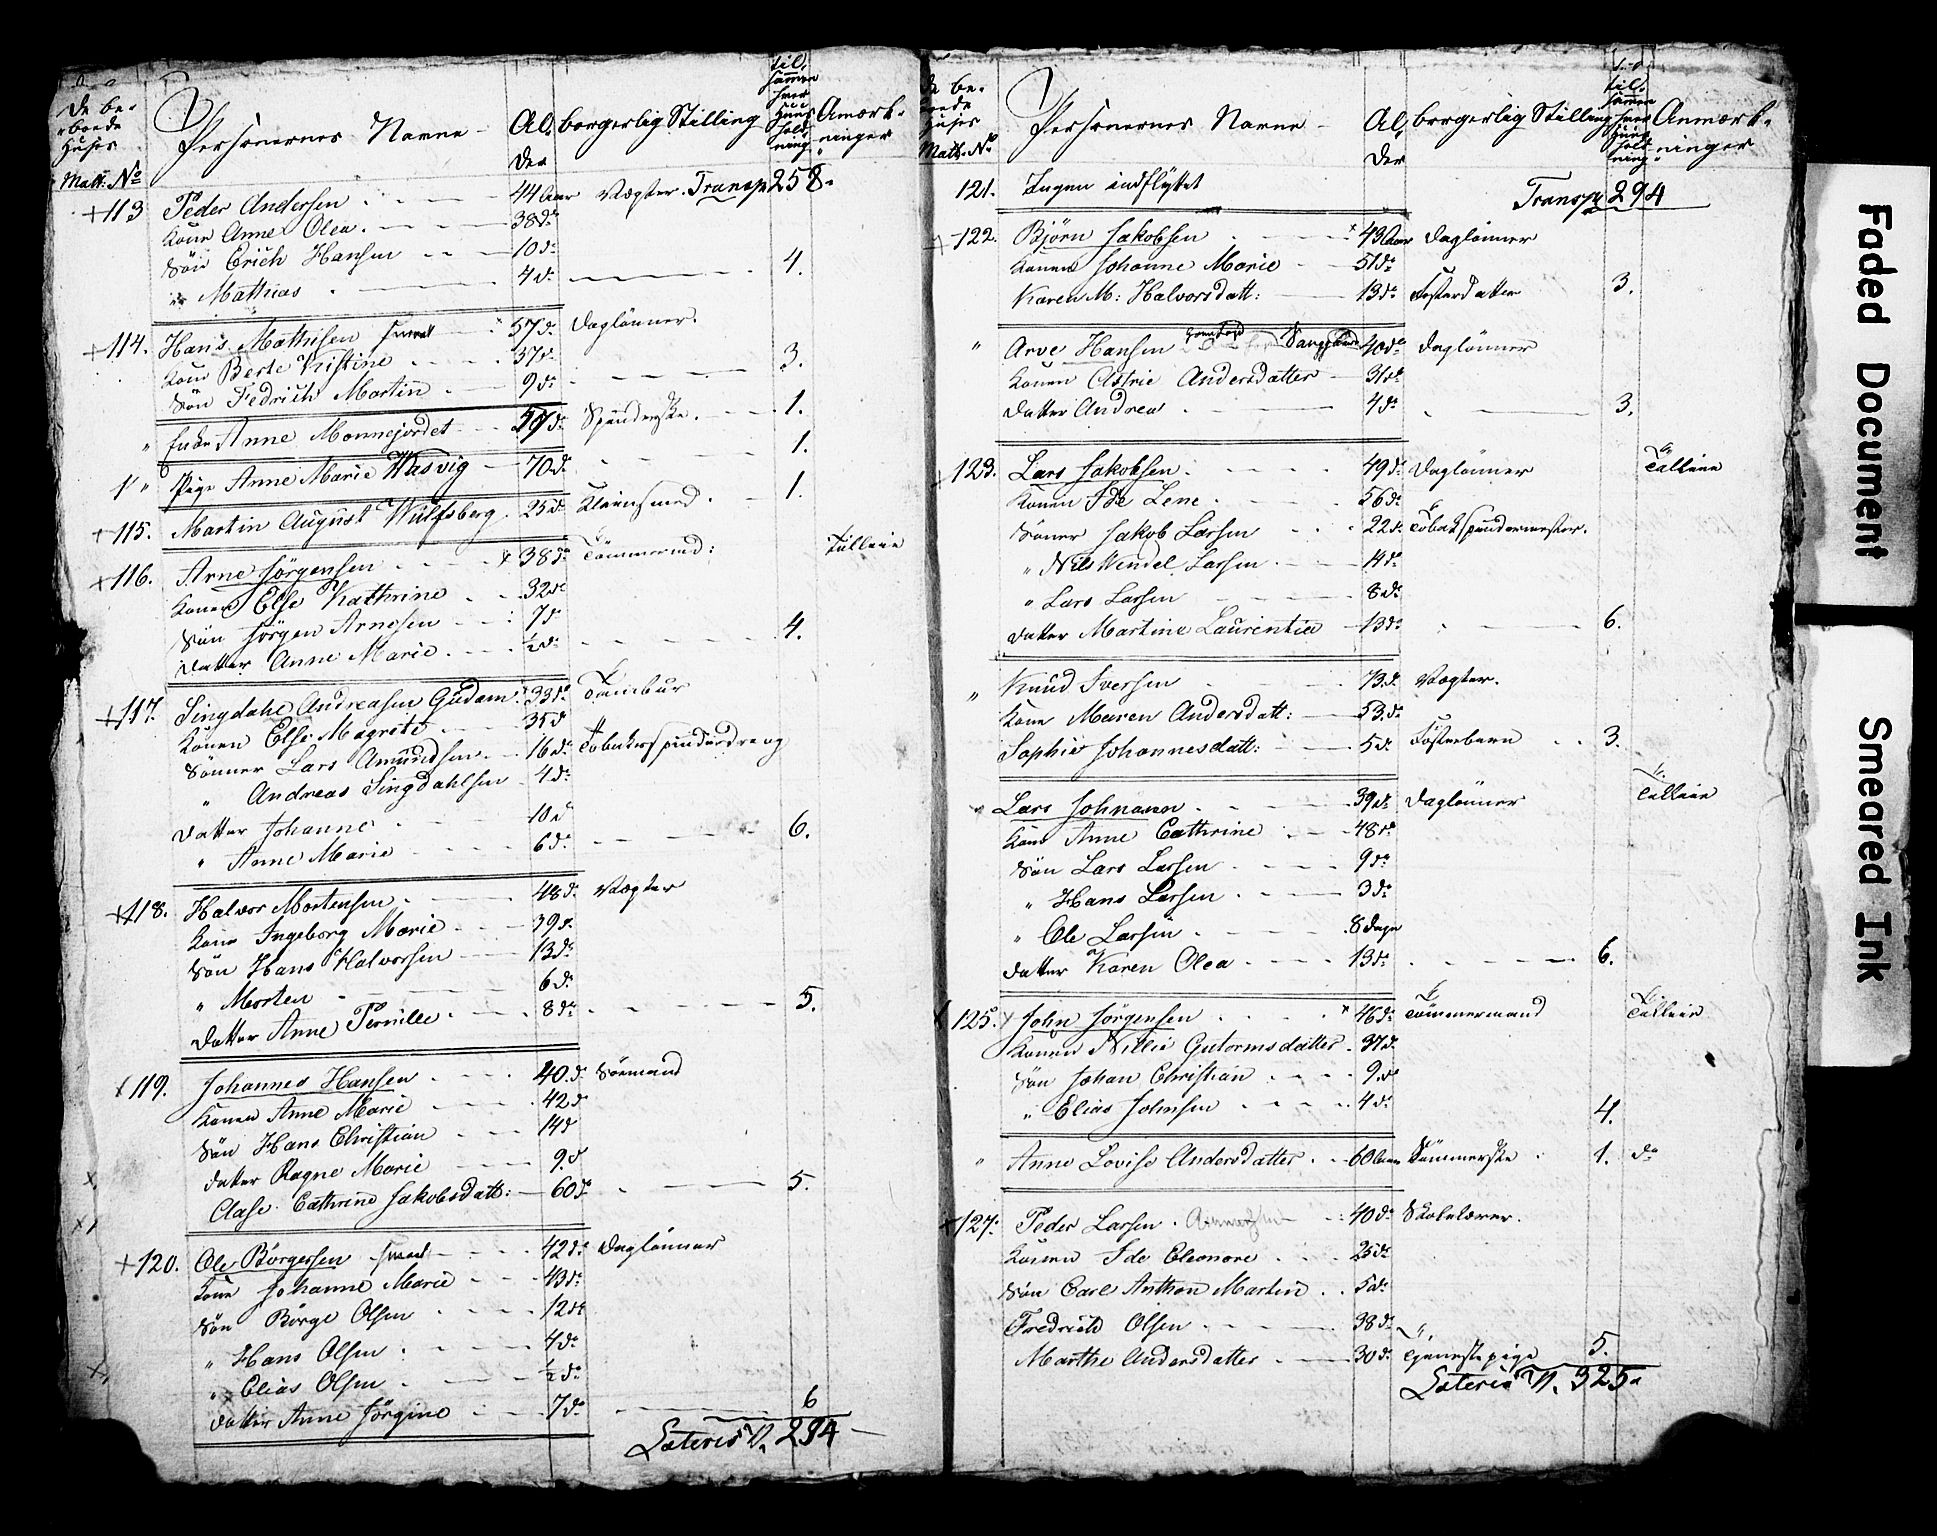 De be-
boede
Huses
Matt. No
Personernes Navne
Al,
der
borgerlig Stilling
til,
sammen
hver
Huus
hold
ning
Anmærk-
ninger
+113 Peder Andersen 44 Aar Vægter. Transp. 258.
Kone Anne Olea 38 do
Søn Erich Hansen 10 do
" Mathias 4 do 4.
+114. Hans Mathisen 57 do Daglønner.
Kone Berte Kistine 37 do
Søn Fedrich Martin 9 do 3.
" Enke Anne Monnejordet do Spinderske. 1.
" Pige Anne Marie Wasvig 70 do 1.
+115. Martin August Wulfsberg 25 do 1.
+116. Arne Jörgensen 38 do Tømmermd: Tilleie
Konen Else Kathrine 32 do
Søn Jörgen Arnesen 7 do
Datter Anne Marie ½ do 4.
+117. Singdahl Andreasen Gudam 33 do Tambur
Konen Else Magrete 35 do
Sønner Lars Amundsen 16 do Tobaksspinderdreng
" Andreas Singdahlsen 4 do
Datter Johanne 10 do
" Anne Marie 6 do 6.
+118. Halvor Mortensen 48 do Vægter
Kone Ingeborg Marie 39 do
Søn Hans Halvorsen 13 do
" Morten 6 do
Datter Anne Pernille 8 do 5.
+119. Johannes Hansen 40 do Sømand
Konen Anne Marie 42 do
Søn Hans Christian 14 do
Datter Ragne Marie 9 do
Clase Cathrine Jakobsdatt: 60 do 5.
+120. Ole Börgersen 42 do Daglønner
Kone Johanne Marie 43 do
Søn Börge Olsen 12 do
" Hans Olsen 4 do
" Elias Olsen ½ do
Datter Anne Jörgine 7 do 6
Lateris N. 294
De be-
boede
Huses
Matt. No
Personernes Navne
Al,
der
borgerlig Stilling
til,
sammen
hver
Huus
hold
ning
Anmærk-
ninger
121. Ingen indflyttet Transp. 294
122. Björn Jakobsen 43 Aar Daglønner
Konen Johanne Marie 51 do
Karen M: Halvorsdatt: 13 do Fosterdatter 3.
" Arve Hansen 40 do Daglønner
Konen Astrie Andersdatter 31 do
Datter Andrea 4 do 3.
123. Lars Jakobsen 49 do Daglønner Tilleie
Konen Ide Lene 56 do
Sønner Jakob Larsen 22 do Tobakspindermester.
" Nils Wendel Larsen 14 do
" Lars Larsen 8 do
Datter Martine Laurentia 13 do 6.
" Knud Iversen 73 do Vægter.
Kone Maren Andersdatt: 53 do
Sophie Johannesdatt: 5 do Fosterbarn 3.
" Lars Johnasen 39 do Daglønner Tilleie
Kone Anne Cathrine 48 do
Søn Lars Larsen 9 do
" Hans Larsen 3 do
" Ole Larsen 8 Dage
Datter Karen Olea 13 do 6.
125. John Jörgensen 46 do Tømmermand Tilleie
Konen Nillie Gutormsdatter 37 do
Søn Johan Christian 9 do
" Elias Johnsen 4 do 4.
" Anne Lovise Andersdatter 60 Aar Sømmerske 1. do
+127. Peder Larsen 40 do Skolelærer.
Konen Ide Eleonore 25 do
Søn Carl Anthon Martin 5 do
Fredrich Olsen 38 do "
Marthe Andersdatter 30 do Tjenestepige 5.
Lateris N. 325
Faded Document
Smeared Ink